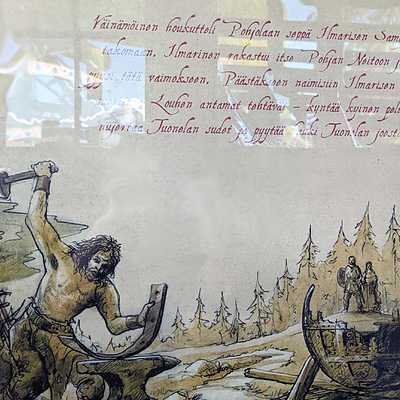 Väinämöinen houkutteli Pohjolaan seppä Ilmarisen Sam
takomaan, Ilmarinen rakastui itse Pohjan Neitoon j
tätä vaimokseen. Päästäkseen naimisiin Ilmarisen
Louhen antamat tehtävät – kyntää kyinen pel
Tuonelan sudet ja pyytää hauki Tuonelan joest